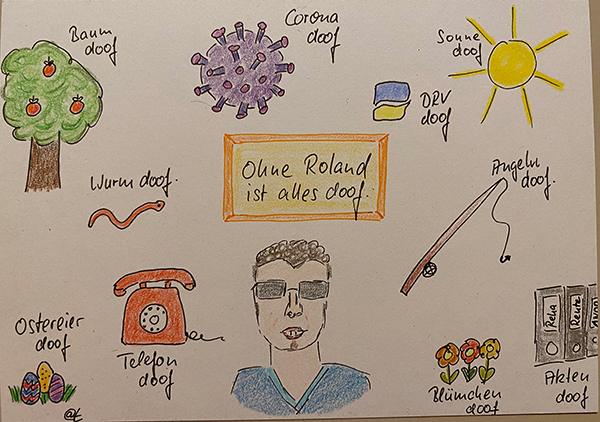 Baum
doof
Corona
doof
Sonne
doof
DRV
doof
Ohne Roland
ist alles doof.
Wurm doof.
Angeln
doof.
Ostereier
doof
Telefon
doof
Blümchen
doof
Reha
Rente
Akten
doof